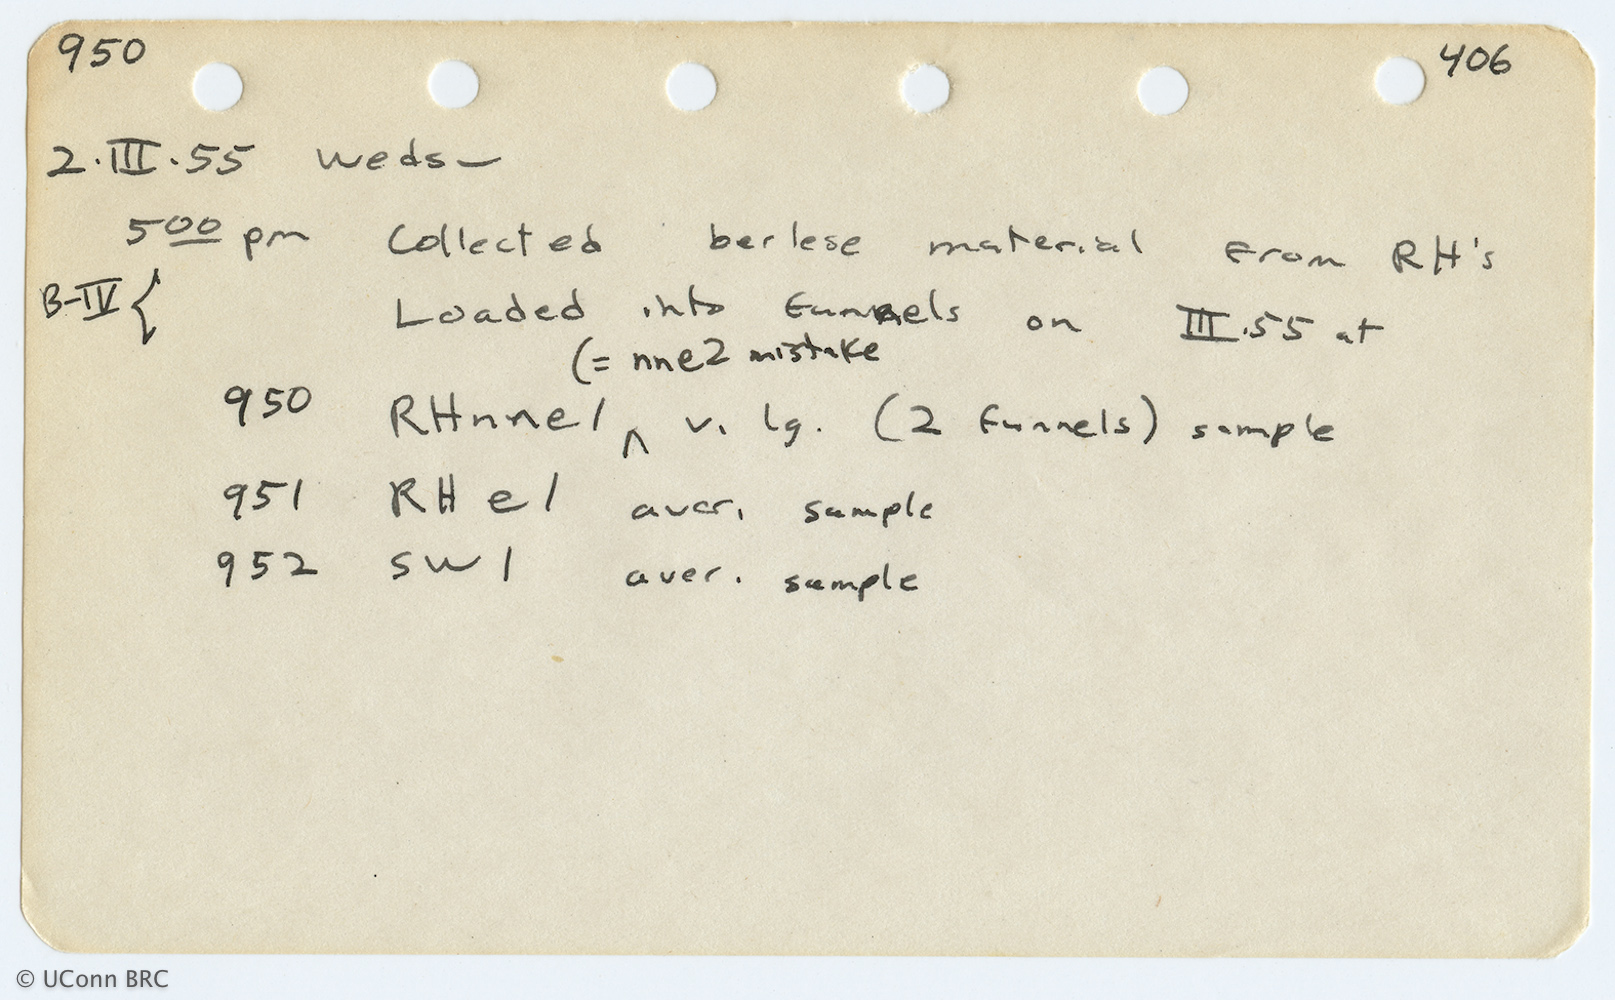 950 406
2·III·55 Weds—
5 00 pm Collected berlese material from RH's
B-IV { Loaded into funnels on III.55 at
(= nne2 mistake
950 RHnne1 ^ v. lg. (2 funnels) sample
951 RH e1 aver. sample
952 SW1 aver. sample
© UConn BRC